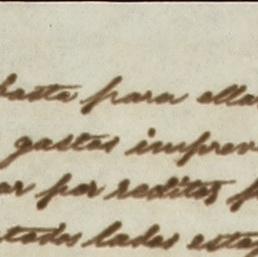 hasta para ella
gastos imprev
ar por reditos p
stados lados esta